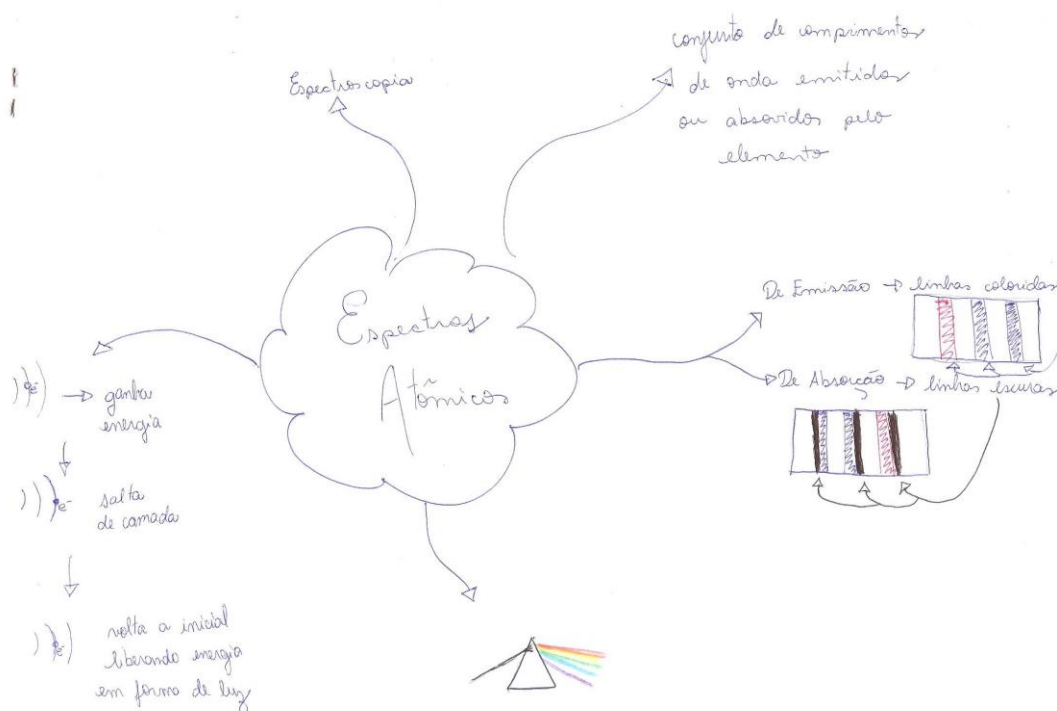 Espectroscopia
conjunto de comprimentos
de onda emitidos
ou absorvidos pelo
elemento
Espectros
Atômicos
De Emissão → linhas coloridas
De Absorção → linhas escuras
e-
→ ganha
energia
e-
salta
de camada
e-
volta a inicial
liberando energia
em forma de luz